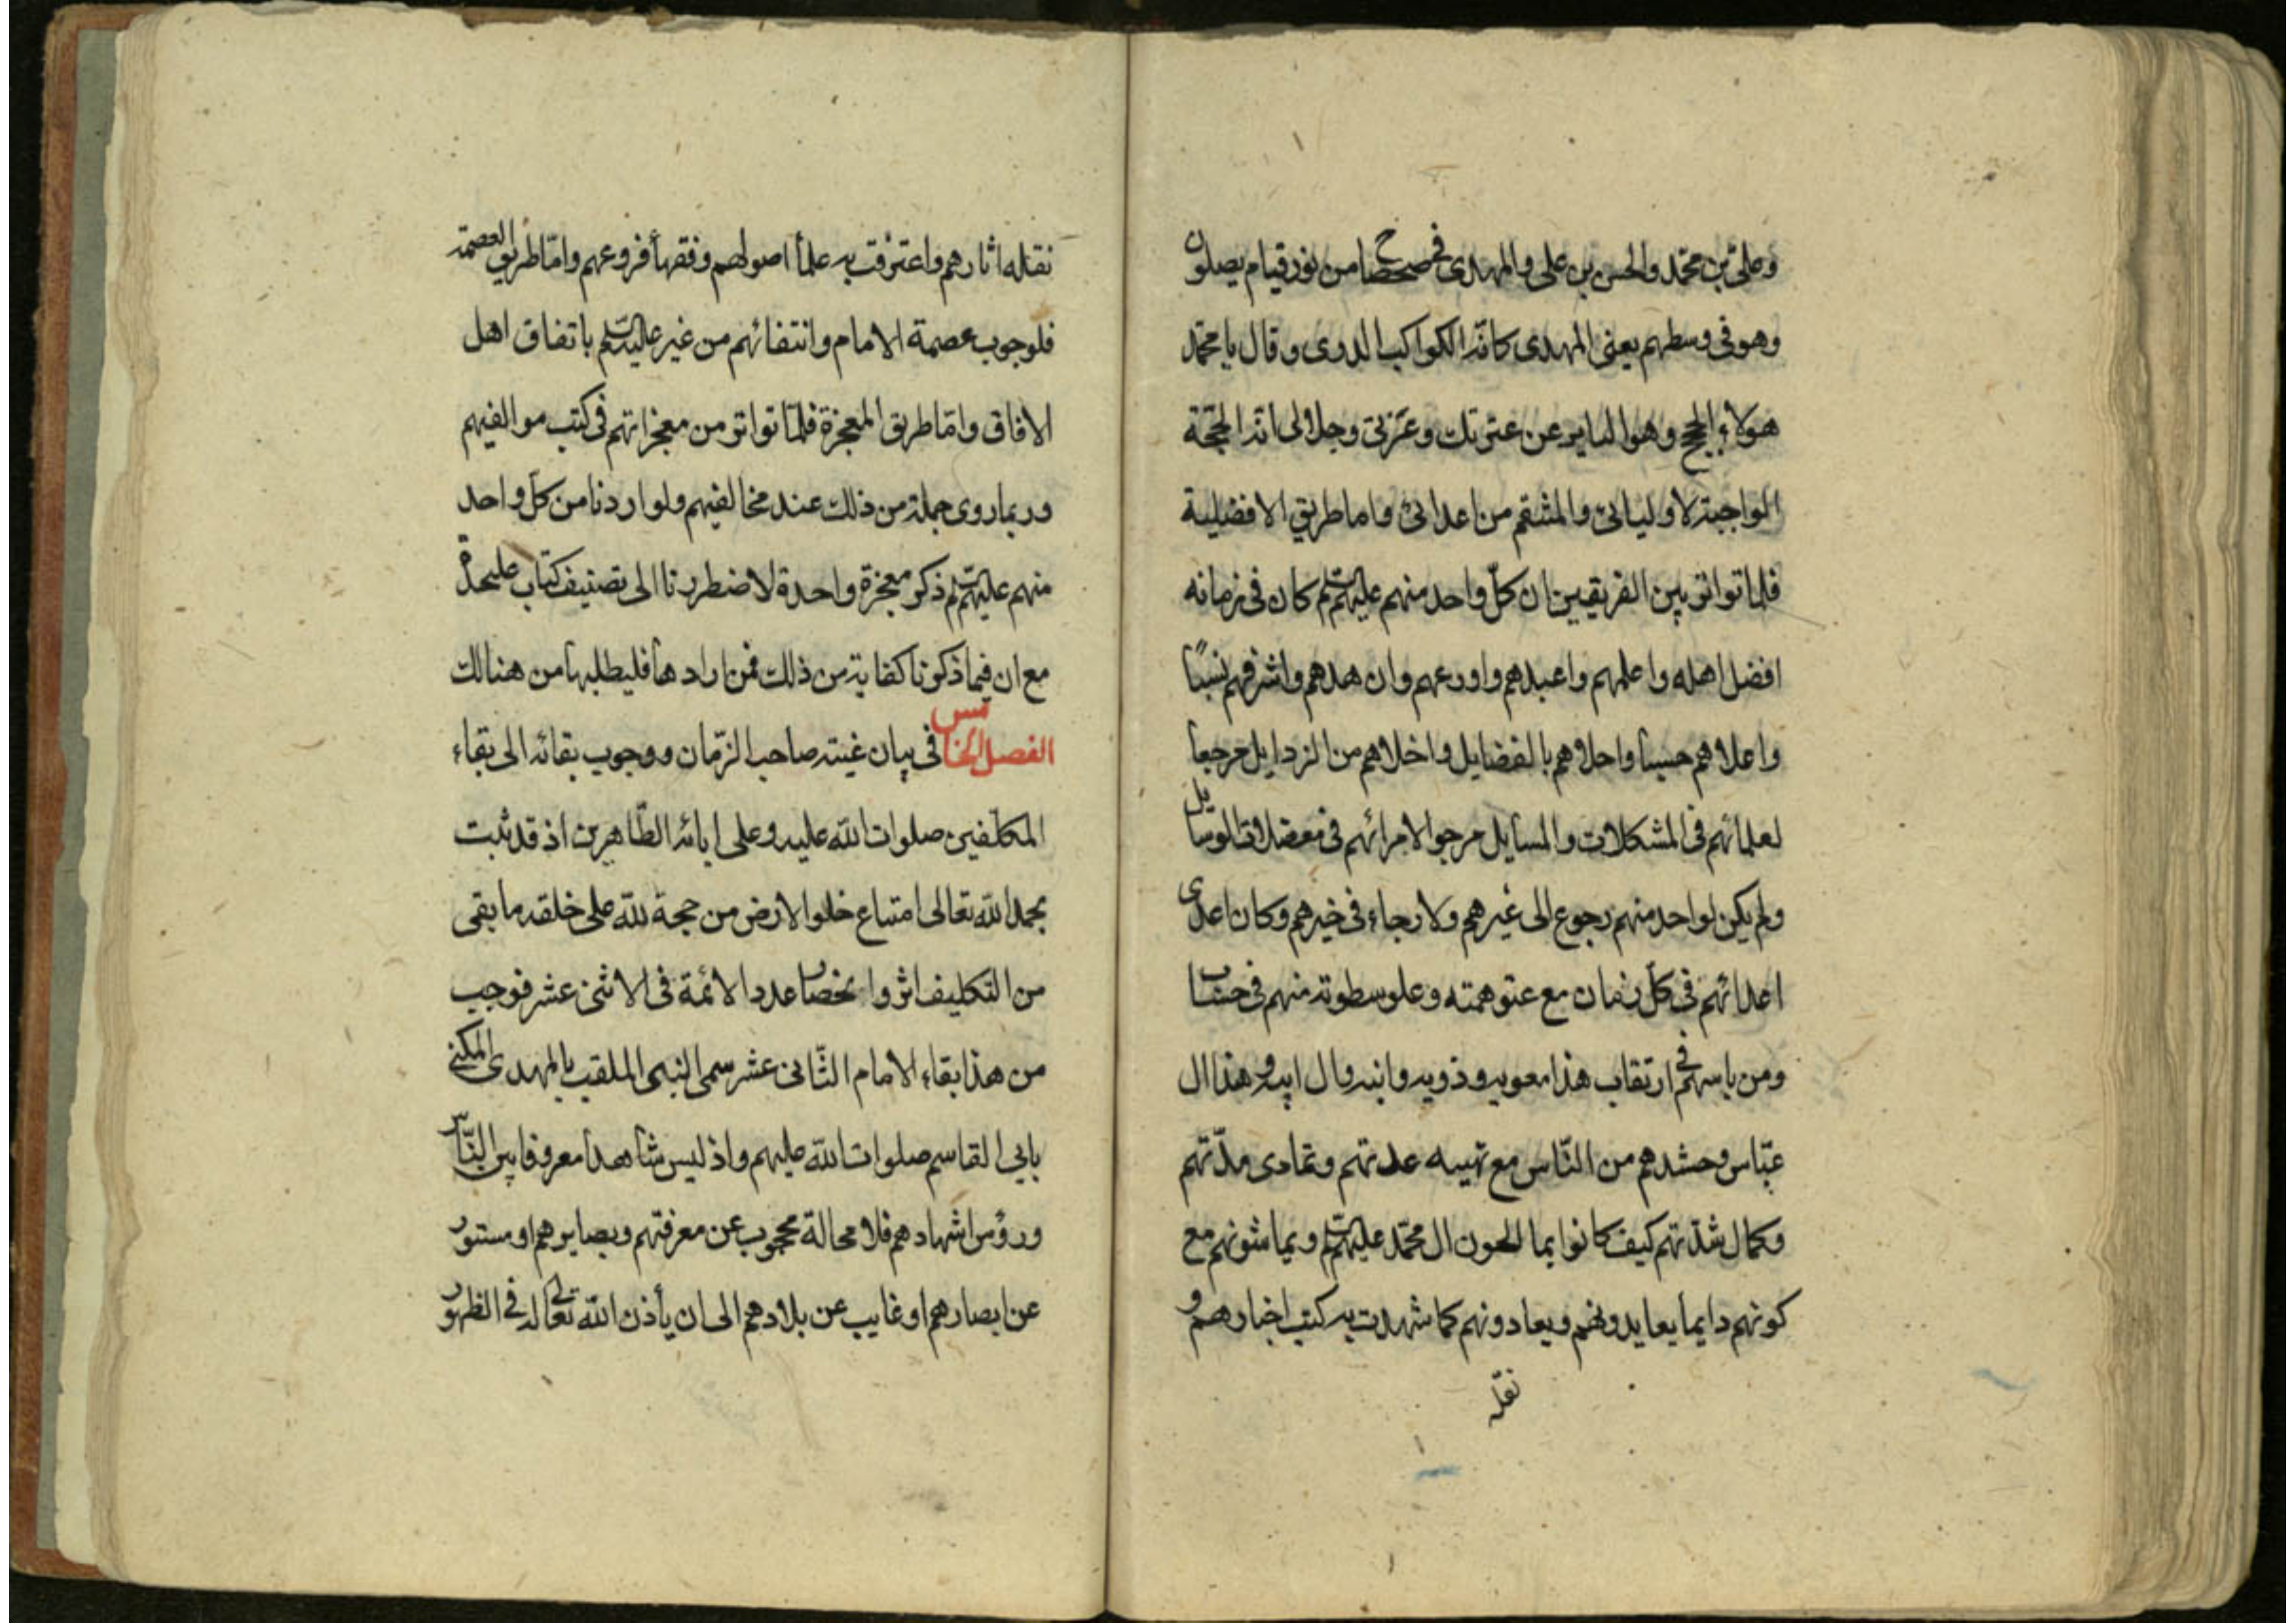 وعلی بن محمد والحسن بن علی والمهدی فی ضحضاح من نور قیام یصلون
وهو فی وسطهم یعنی المهدی کانه الکواکب الدری وقال یا محمد
هولاء الحجج وهو الثایر عن عترتک وعزتی وجلالی انه الحجة
الواجبة لاولیائی والمنتقم من اعدائی واما طریق الافضلیة
فلما تواتر بین الفریقین ان کل واحد منهم علیهم السلام کان فی زمانه
افضل اهله واعلمهم واعبدهم واورعهم وازهدهم واشرفهم نسبا
واعلاهم حسبا واحلاهم بالفضایل واخلاهم من الرذایل مرجعا
لعلمائهم فی المشکلات والمسایل مرجوا لامرائهم فی معضلات الوسایل
ولم یکن لواحد منهم رجوع الی غیرهم ولا رجاء فی خیرهم وکان اعدی
اعدائهم فی کل زمان مع عتو همته وعلو سطوته منهم فی حساب
ومن باسهم فی ارتقاب هذا معویه وذویه وابنه وال ابیه وهذا ال
عباس وحشدهم من الناس مع عدتهم وتمادی مدتهم
وکمال شدتهم کیف کانوا یمالحون ال محمد علیهم السلام ویماشونهم مع
کونهم دایما یعاندونهم ویعادونهم کما شهدت به کتب اخبارهم و
نقله
نقله اثارهم واعترفت به علماء اصولهم وفقهاء فروعهم واما طریق العصمة
فلوجوب عصمة الامام وانتفائهم من غیر علیهم السلام باتفاق اهل
الافاق واما طریق المعجزة فلما تواتر من معجزاتهم فی کتب موالفیهم
وربما روی جملة من ذلک عند مخالفیهم ولو اردنا من کل واحد
منهم علیهم السلام ذکر معجزة واحدة لاضطررنا الی تصنیف کتاب علیحدة
مع ان فیما ذکرنا کفایة من ذلک فمن ارادها فلیطلبها من هنالک
الفصل الخامس فی بیان غیبته صاحب الزمان ووجوب بقائه الی بقاء
المکلفین صلوات الله علیه وعلی ابائه الطاهرین اذ قد ثبت
بحمد الله تعالی امتناع خلو الارض من حجة لله علی خلقه ما بقی
من التکلیف اثر وانحصار عدد الائمة فی الاثنی عشر فوجب
من هذا بقاء الامام الثانی عشر سمی النبی الملقب بالمهدی المکنی
بابی القاسم صلوات الله علیهم واذ لیس شاهدا معروفا بین الناس
ورؤس اشهادهم فلا محالة محجوب عن معرفتهم وبصایرهم او مستور
عن ابصارهم او غایب عن بلادهم الی ان یأذن الله تعالی له فی الظهور